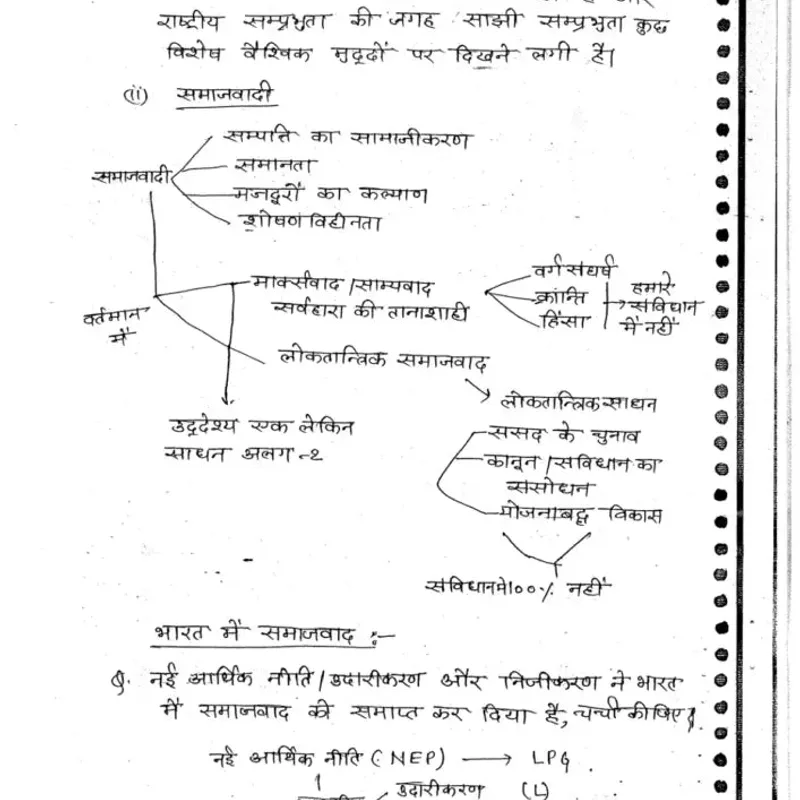 राष्ट्रीय सम्प्रभुता की जगह साझी सम्प्रभुता कुछ
विशेष वैश्विक मुद्दों पर दिखने लगी है।
(ii) समाजवादी
सम्पत्ति का सामाजीकरण
समाजवादी
समानता
मजदूरों का कल्याण
शोषण विहीनता
वर्तमान में
मार्क्सवाद / साम्यवाद
सर्वहारा की तानाशाही
वर्ग संघर्ष
क्रान्ति
हिंसा
हमारे
संविधान
में नहीं
लोकतान्त्रिक समाजवाद
उद्देश्य एक लेकिन
साधन अलग -2
लोकतान्त्रिक साधन
संसद के चुनाव
कानून / संविधान का
संसोधन
योजनाबद्ध विकास
संविधान में 100% नहीं
भारत में समाजवाद :-
Q. नई आर्थिक नीति / उदारीकरण और निजीकरण ने भारत
में समाजवाद को समाप्त कर दिया है, चर्चा कीजिए।
नई आर्थिक नीति (NEP) → LPG.
उदारीकरण (L)